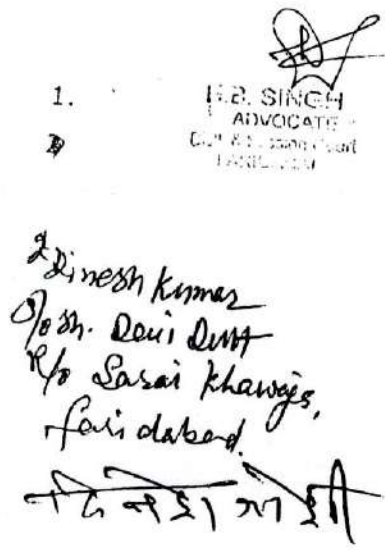 1.
H.B. SINGH
ADVOCATE
Distt. & Session Court
2 Dinesh Kumar
S/o Sh. Devi Dutt
R/o Sarai Khawaja,
faridabad.
दिनेश जोशी